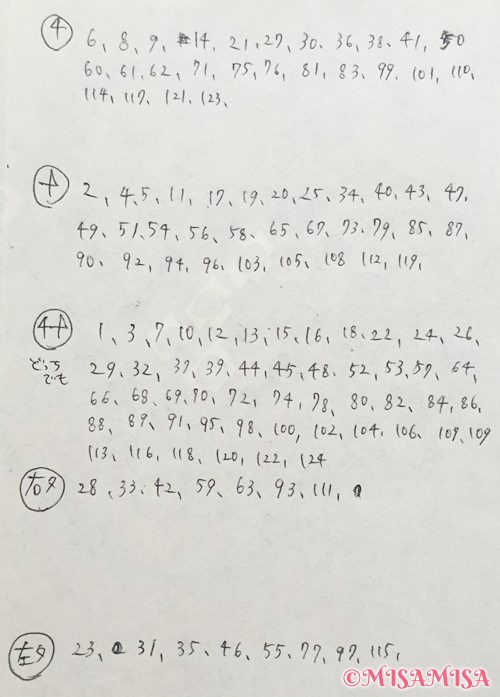 ④ 6、8、9、14、21、27、30、36、38、41、50
60、61、62、71、75、76、81、83、99、101、110、
114、117、121、123、
2、4、5、11、17、19、20、25、34、40、43、47、
49、51、54、56、58、65、67、73、79、85、87、
90、92、94、96、103、105、108 112、119、
1、3、7、10、12、13、15、16、18、22、24、26、
どっち
でも
29、32、37、39、44、45、48、52、53、57、64、
66、68、69、70、72、74、78、80、82、84、86、
88、89、91、95、98、100、102、104、106、107、109
113、116、118、120、122、124
右夕 28、33、42、59、63、93、111、
左夕 23、31、35、46、55、77、97、115、
©MISAMISA